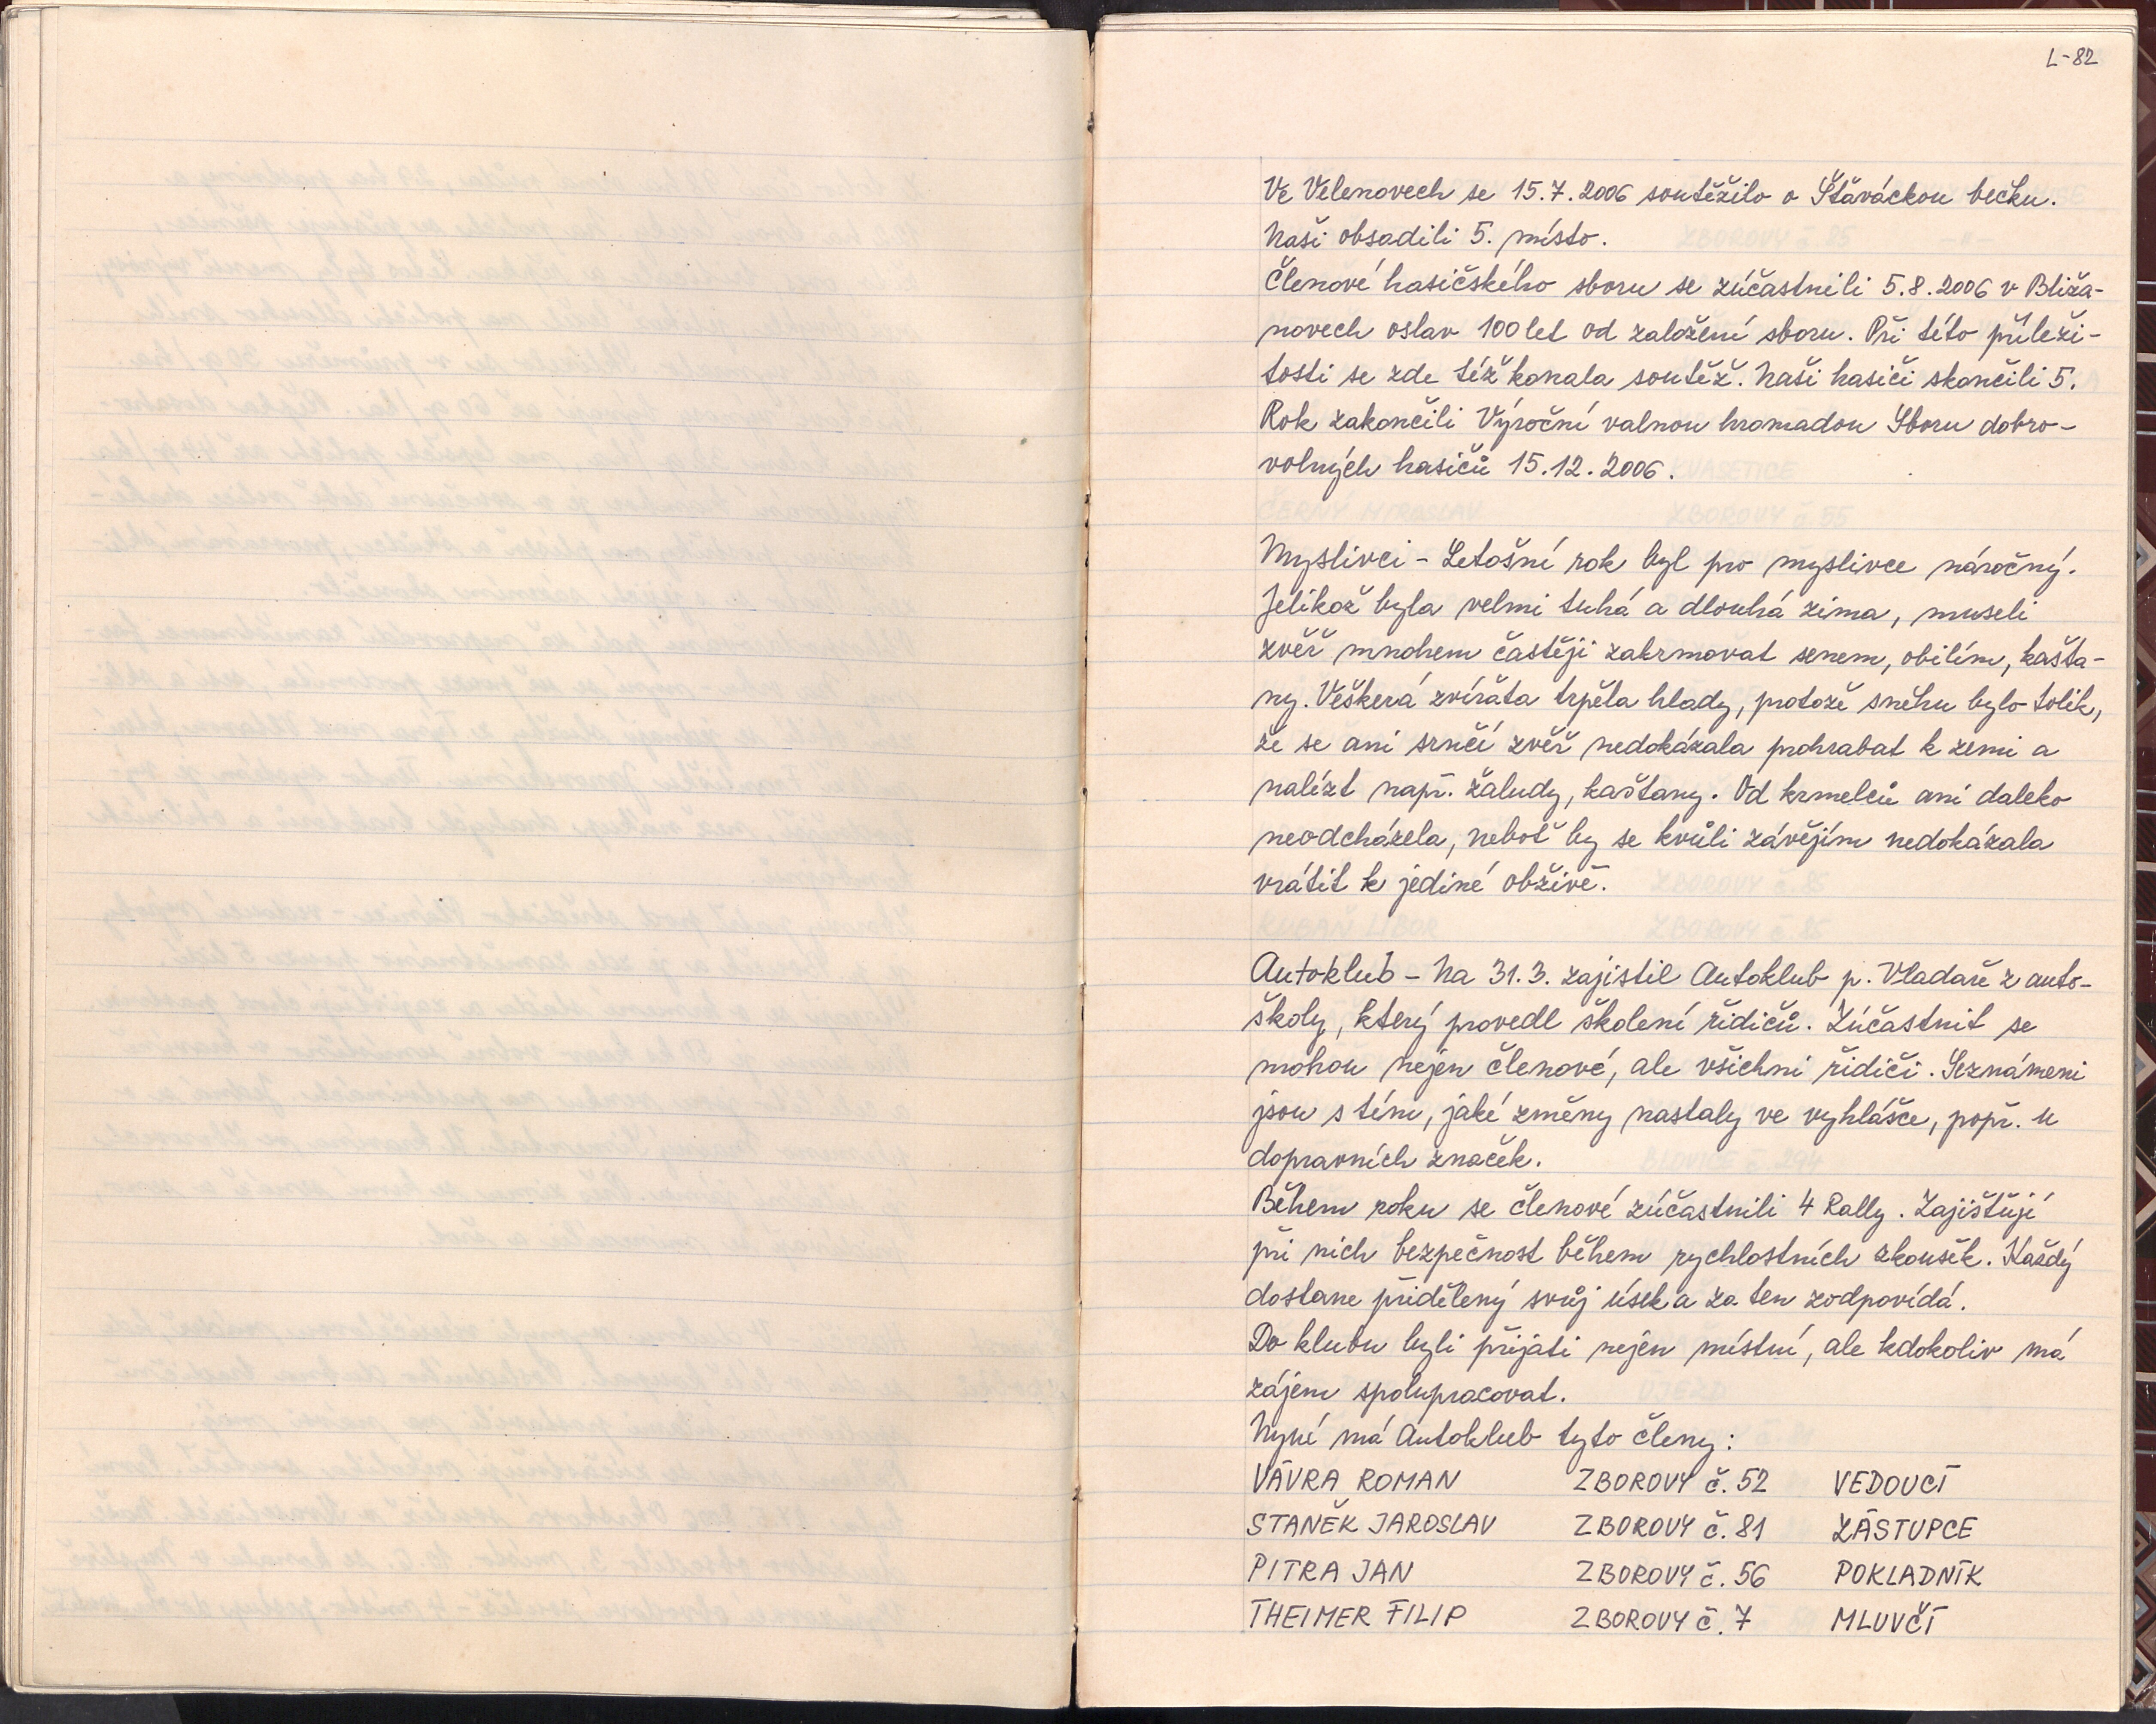 L-82
Ve Velenovech se 15.7.2006 soutěžilo o Šťáváckou bečku.
Naši obsadili 5. místo.
Členové hasičského sboru se zúčastnili 5.8.2006 v Bliža-
novech oslav 100 let od založení sboru. Při této příleži-
tosti se zde též konala soutěž. Naši hasiči skončili 5.
Rok zakončili Výroční valnou hromadou Sboru dobro-
volných hasičů 15.12.2006.
Myslivci - Letošní rok byl pro myslivce náročný.
Jelikož byla velmi tuhá a dlouhá zima, museli
zvěř mnohem častěji zakrmovat senem, obilím, kašta-
ny. Veškerá zvířata trpěla hlady, protože sněhu bylo tolik,
že se ani srnčí zvěř nedokázala prohrabat k zemi a
nalézt např. žaludy, kaštany. Od krmelců ani daleko
neodcházela, neboť by se kvůli závějím nedokázala
vrátit k jediné obživě.
Autoklub - Na 31.3. zajistil Autoklub p. Vladaře z auto-
školy, který provedl školení řidičů. Zúčastnit se
mohou nejen členové, ale všichni řidiči. Seznámeni
jsou s tím, jaké změny nastaly ve vyhlášce, popř. u
dopravních značek.
Během roku se členové zúčastnili 4 Rally. Zajišťují
při nich bezpečnost během rychlostních zkoušek. Každý
dostane přidělený svůj úsek a za ten zodpovídá.
Do klubu byli přijati nejen místní, ale kdokoliv má
zájem spolupracovat.
Nyní má Autoklub tyto členy:
VÁVRA ROMAN ZBOROVY č. 52 VEDOUCÍ
STANĚK JAROSLAV ZBOROVY č. 81 ZÁSTUPCE
PITRA JAN ZBOROVY č. 56 POKLADNÍK
THEIMER FILIP ZBOROVY č. 7 MLUVČÍ